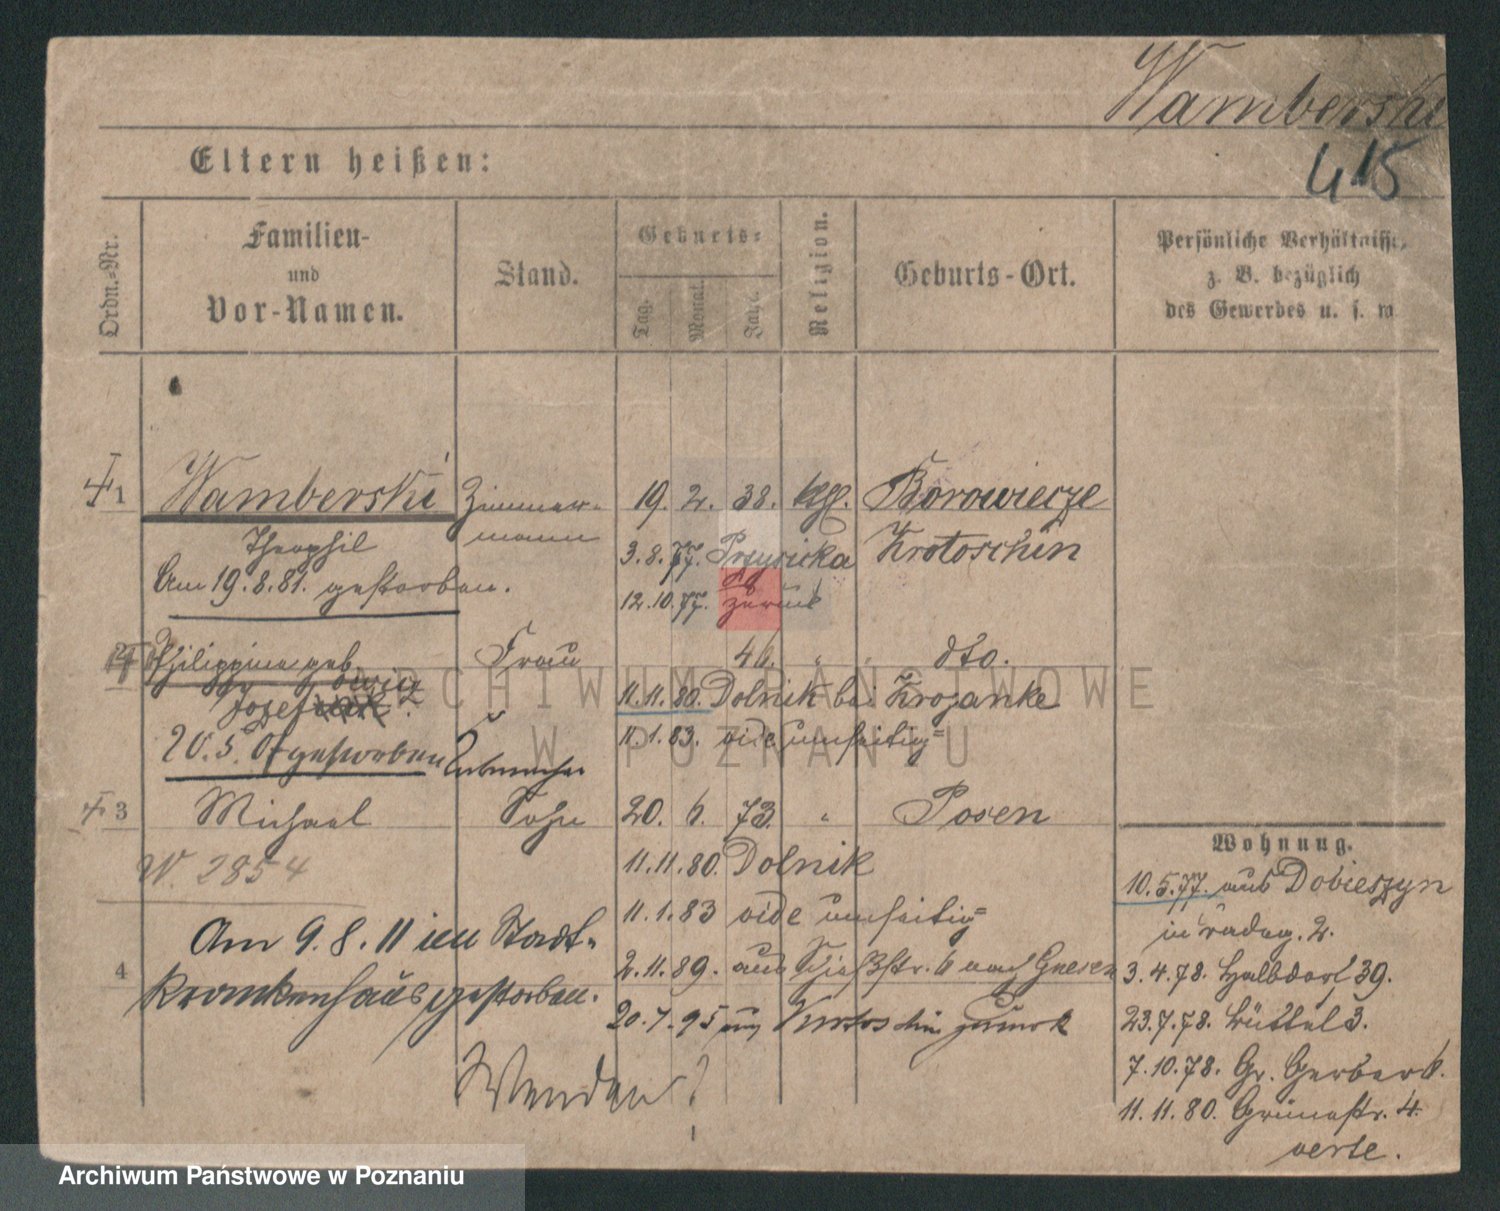 Wamberski
415
Eltern heißen:
Ordn.-Nr.
Familien-
und
Vor-Namen.
Stand.
Geburts-
Tag.
Monat.
Jahr.
Religion.
Geburts-Ort.
Persönliche Verhältnisse,
z. B. bezüglich
des Gewerbes u. s. w.
1 Wamberski Zimmer- 19. 2. 38. kgl. Borowiecze
mann
Theophil 3.8.77. Krotoschin
Am 19.8.81. gestorben. 12.10.77. zurück
2 Philippine geb. Frau 46. " dto.
11.11.80. Dolnik bei Krojanke
11.1.83. vide umseitig
20.5. gestorben
3 Michael Sohn 20. 6. 73. " Posen
W. 2854 11.11.80. Dolnik
11.1.83 vide umseitig
Am 9.8.11 im Stadt-
4 krankenhaus gestorben.
2.11.89. aus Schießstr. 6 nach Gnesen
20.7.95 aus Krotoschin zurück
Wenden!
Wohnung.
10.5.77. aus Dobieszyn
in 2.
3.4.78. Halbdorf 39.
23.7.78. Büttel 3.
7.10.78. Gr. Gerber 6.
11.11.80. Grünestr. 4.
verte.
ARCHIWUM PAŃSTWOWE
W POZNANIU
Archiwum Państwowe w Poznaniu